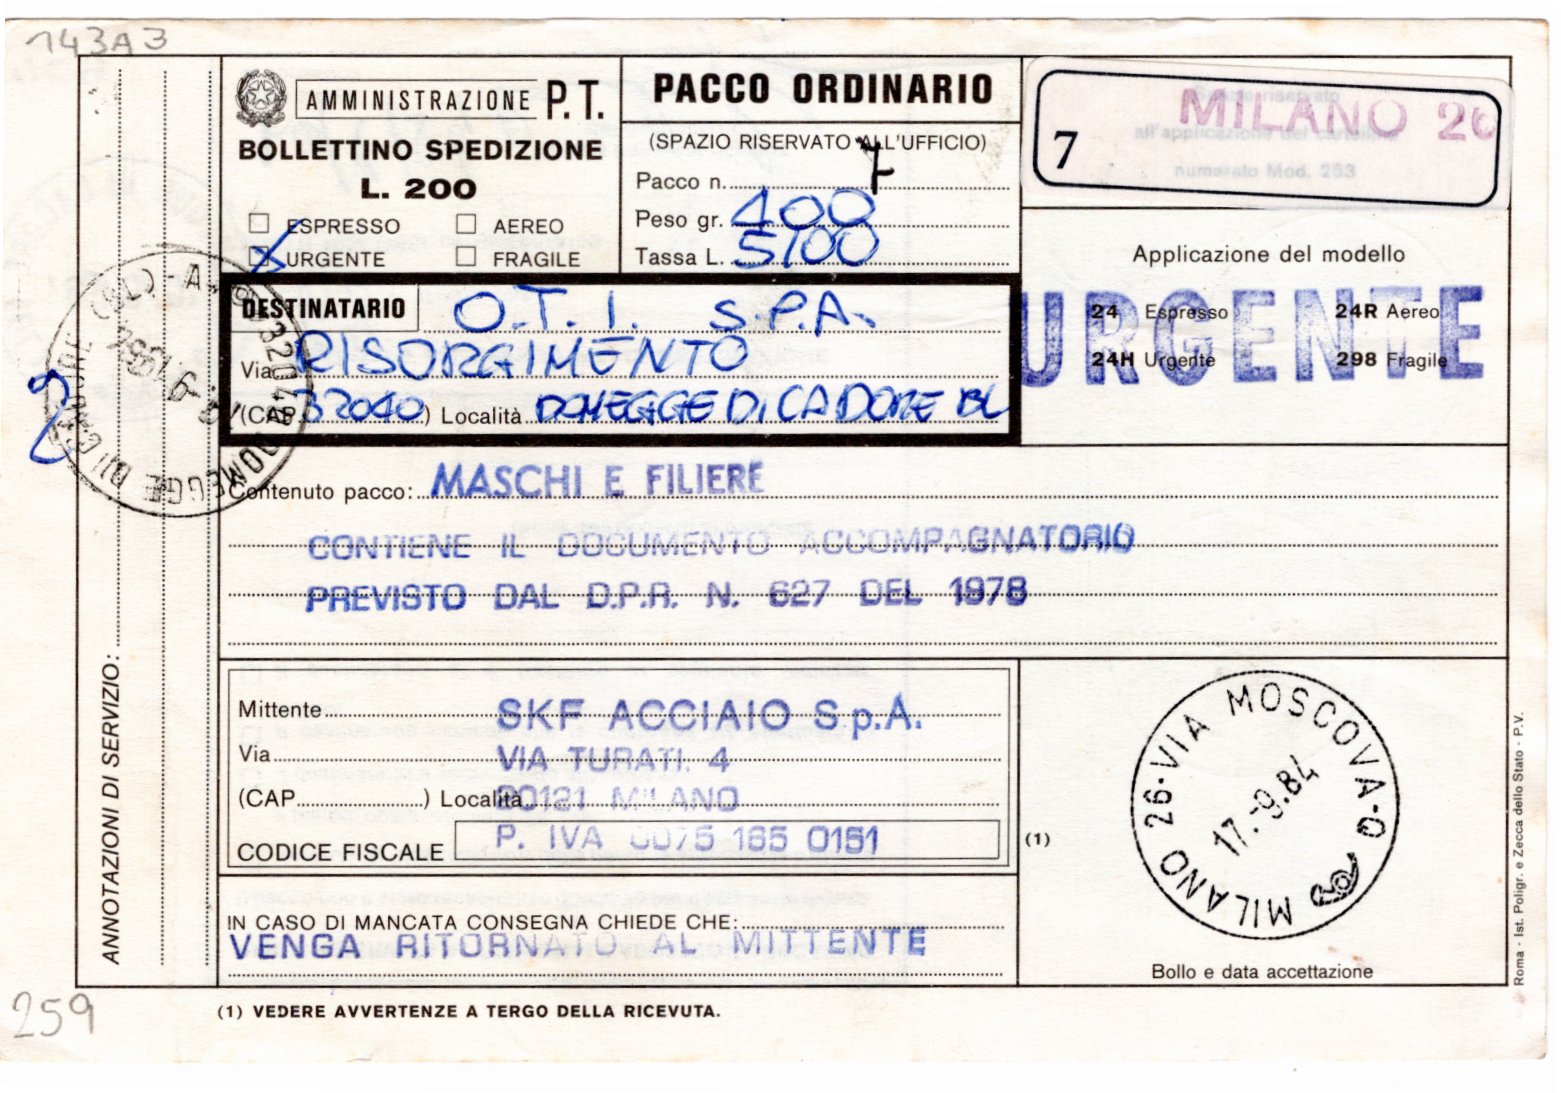 143A3
AMMINISTRAZIONE P.T.
BOLLETTINO SPEDIZIONE
L. 200
ESPRESSO
AEREO
URGENTE
FRAGILE
PACCO ORDINARIO
(SPAZIO RISERVATO ALL'UFFICIO)
Pacco n. 7
Peso gr. 400
Tassa L. 5100
7
MILANO 26
Spazio riservato
all'applicazione del cartellino
numerato Mod. 263
Applicazione del modello
URGENTE
24 Espresso
24R Aereo
24H Urgente
298 Fragile
DESTINATARIO O.T.I. S.P.A.
Via RISORGIMENTO
(CAP 32040) Località DOMEGGE DI CADORE BL
DOMEGGE DI CADORE (BL) 32040
Contenuto pacco: MASCHI E FILIERE
CONTIENE IL DOCUMENTO ACCOMPAGNATORIO
PREVISTO DAL D.P.R. N. 627 DEL 1978
ANNOTAZIONI DI SERVIZIO:
Mittente SKF ACCIAIO S.p.A.
Via VIA TURATI. 4
(CAP ) Località 20121 MILANO
CODICE FISCALE P. IVA 0075 165 0151
(1)
MILANO 26·VIA MOSCOVA-Q
17.-9.84
IN CASO DI MANCATA CONSEGNA CHIEDE CHE:
VENGA RITORNATO AL MITTENTE
Bollo e data accettazione
Roma - Ist. Poligr. e Zecca dello Stato - P.V.
259
(1) VEDERE AVVERTENZE A TERGO DELLA RICEVUTA.